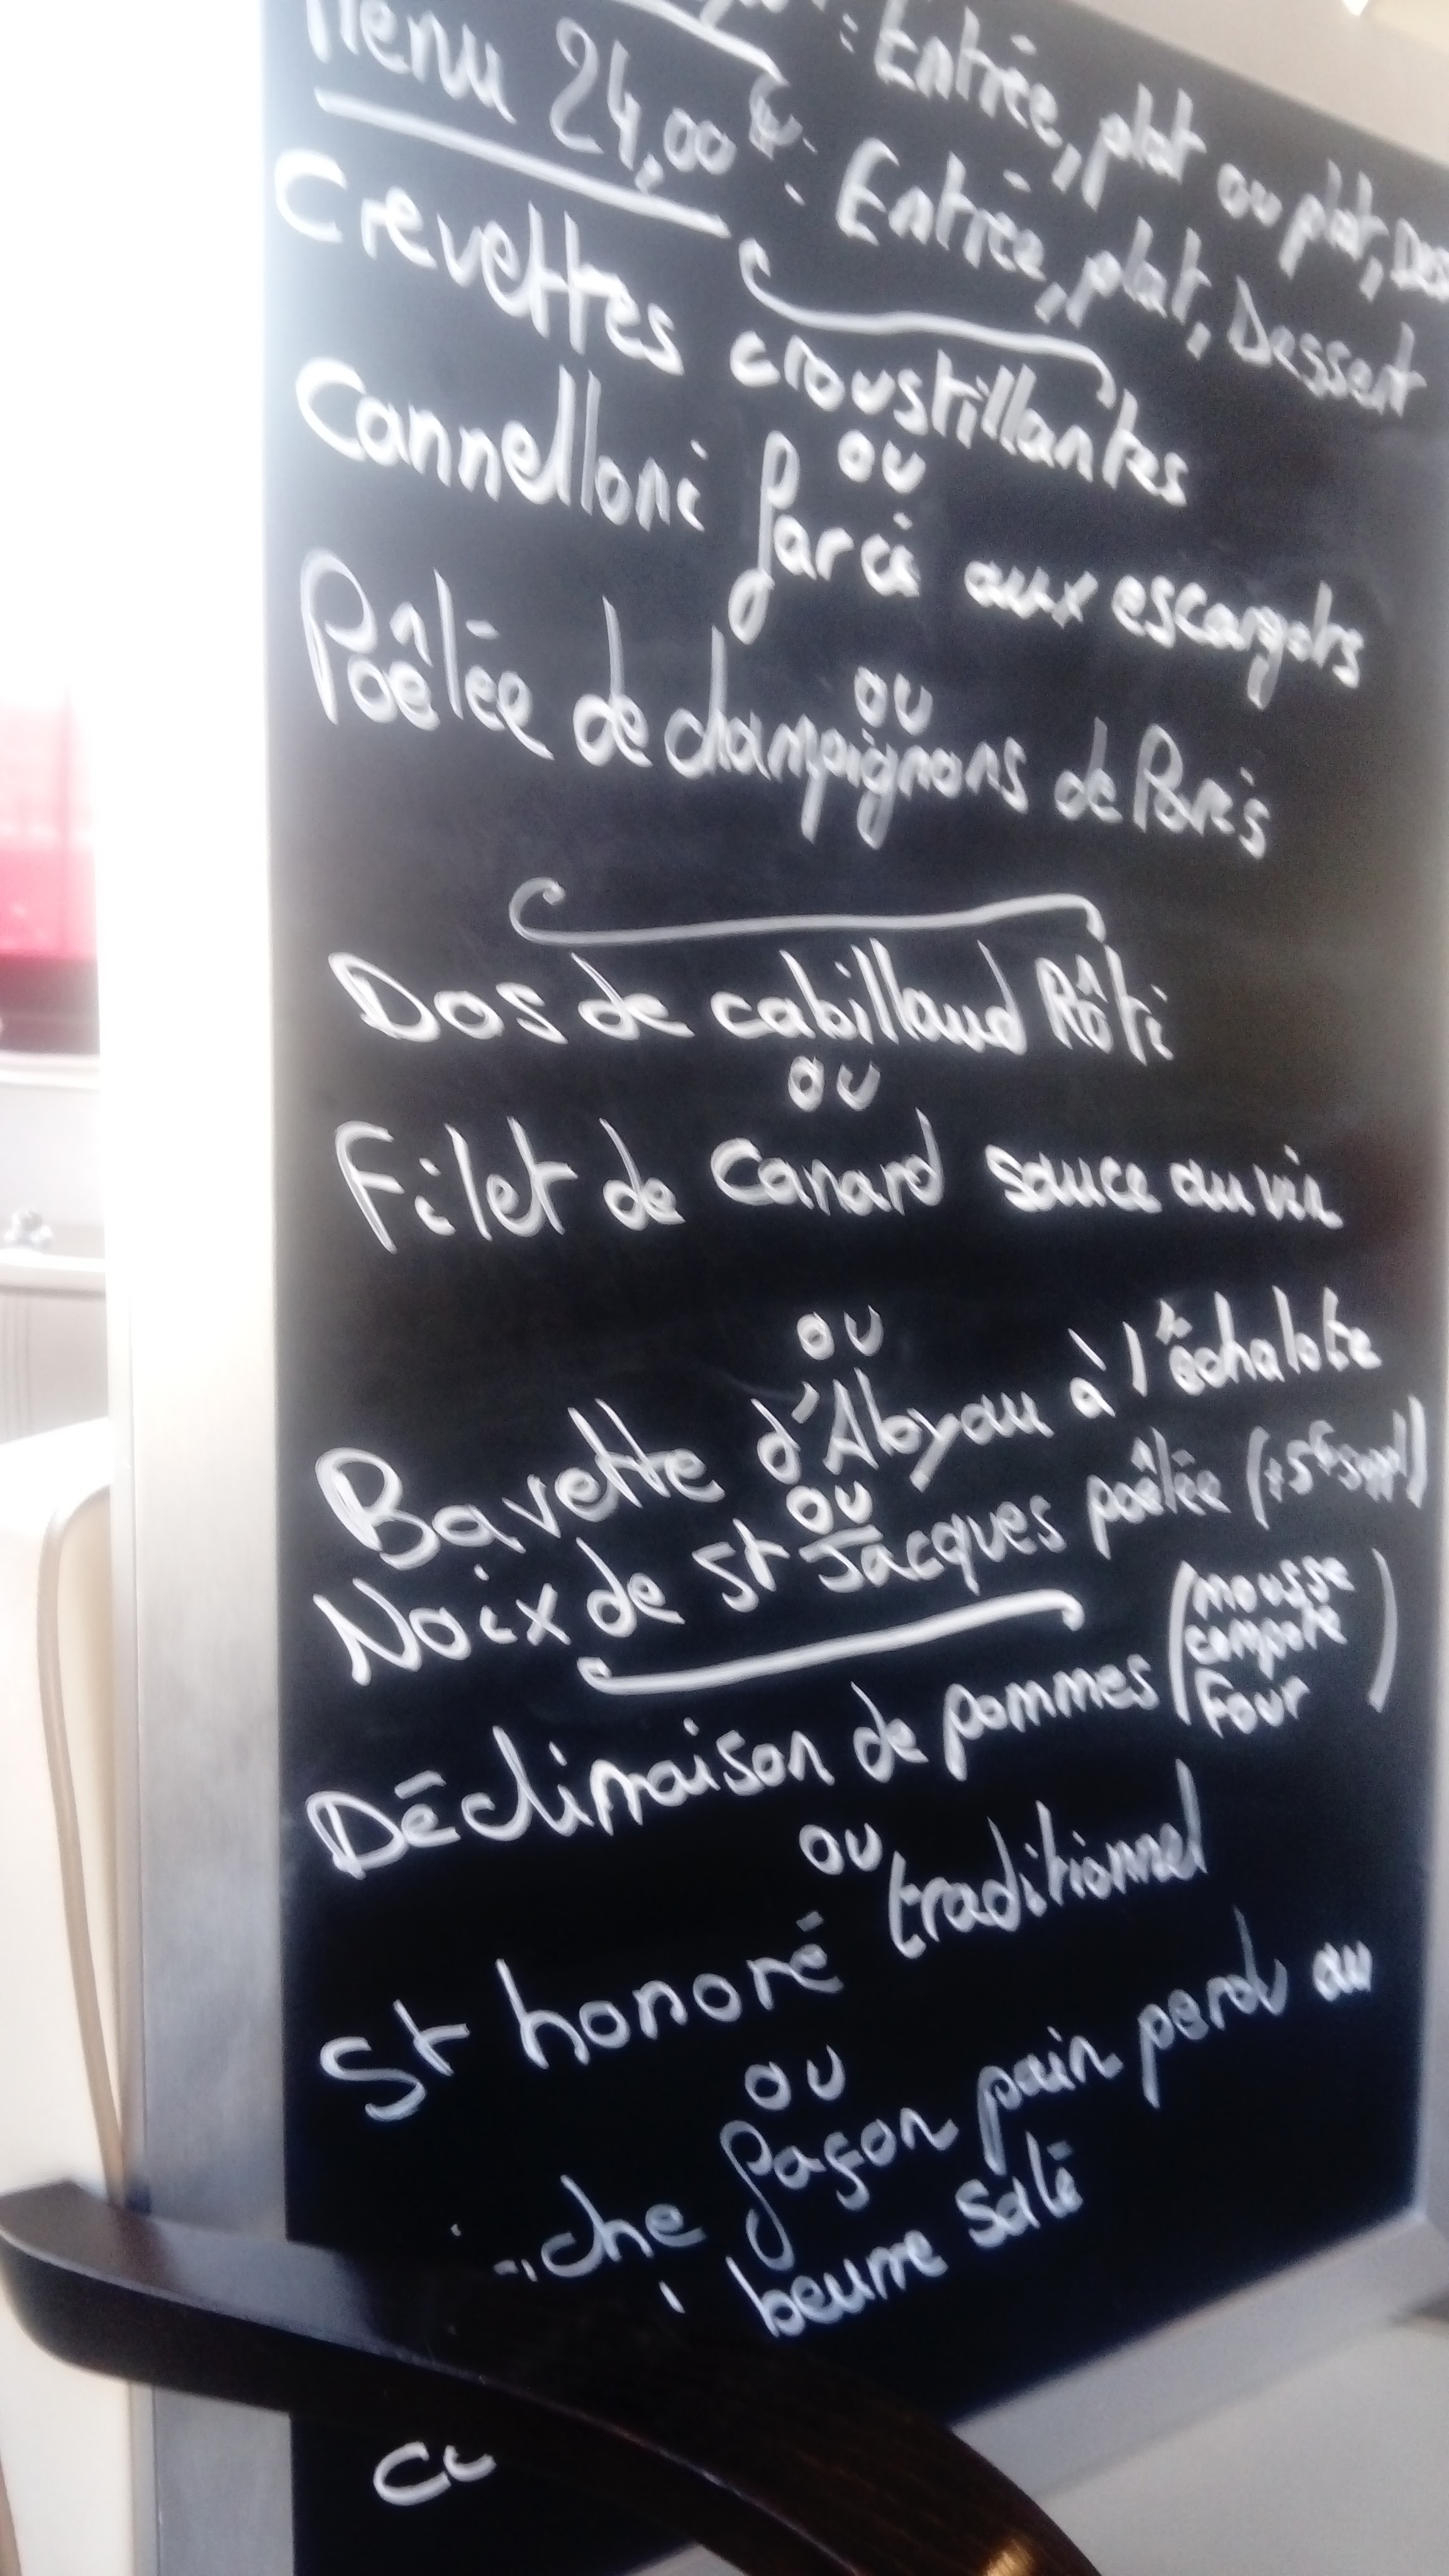 : Entrée, plat ou plat, Des
Menu 24,00 €. : Entrée, plat, Dessert
Crevettes croustillantes
ou
Cannelloni farci aux escargots
ou
Poêlée de champignons de Paris
Dos de cabillaud Rôti
ou
Filet de Canard sauce au vin
ou
Bavette d'Aloyau à l'échalote
ou
Noix de St Jacques poêlée (+5€ suppl)
Déclinaison de pommes (mousse
compote
Four)
ou
St honoré traditionnel
ou
che façon pain perdu au
beurre salé